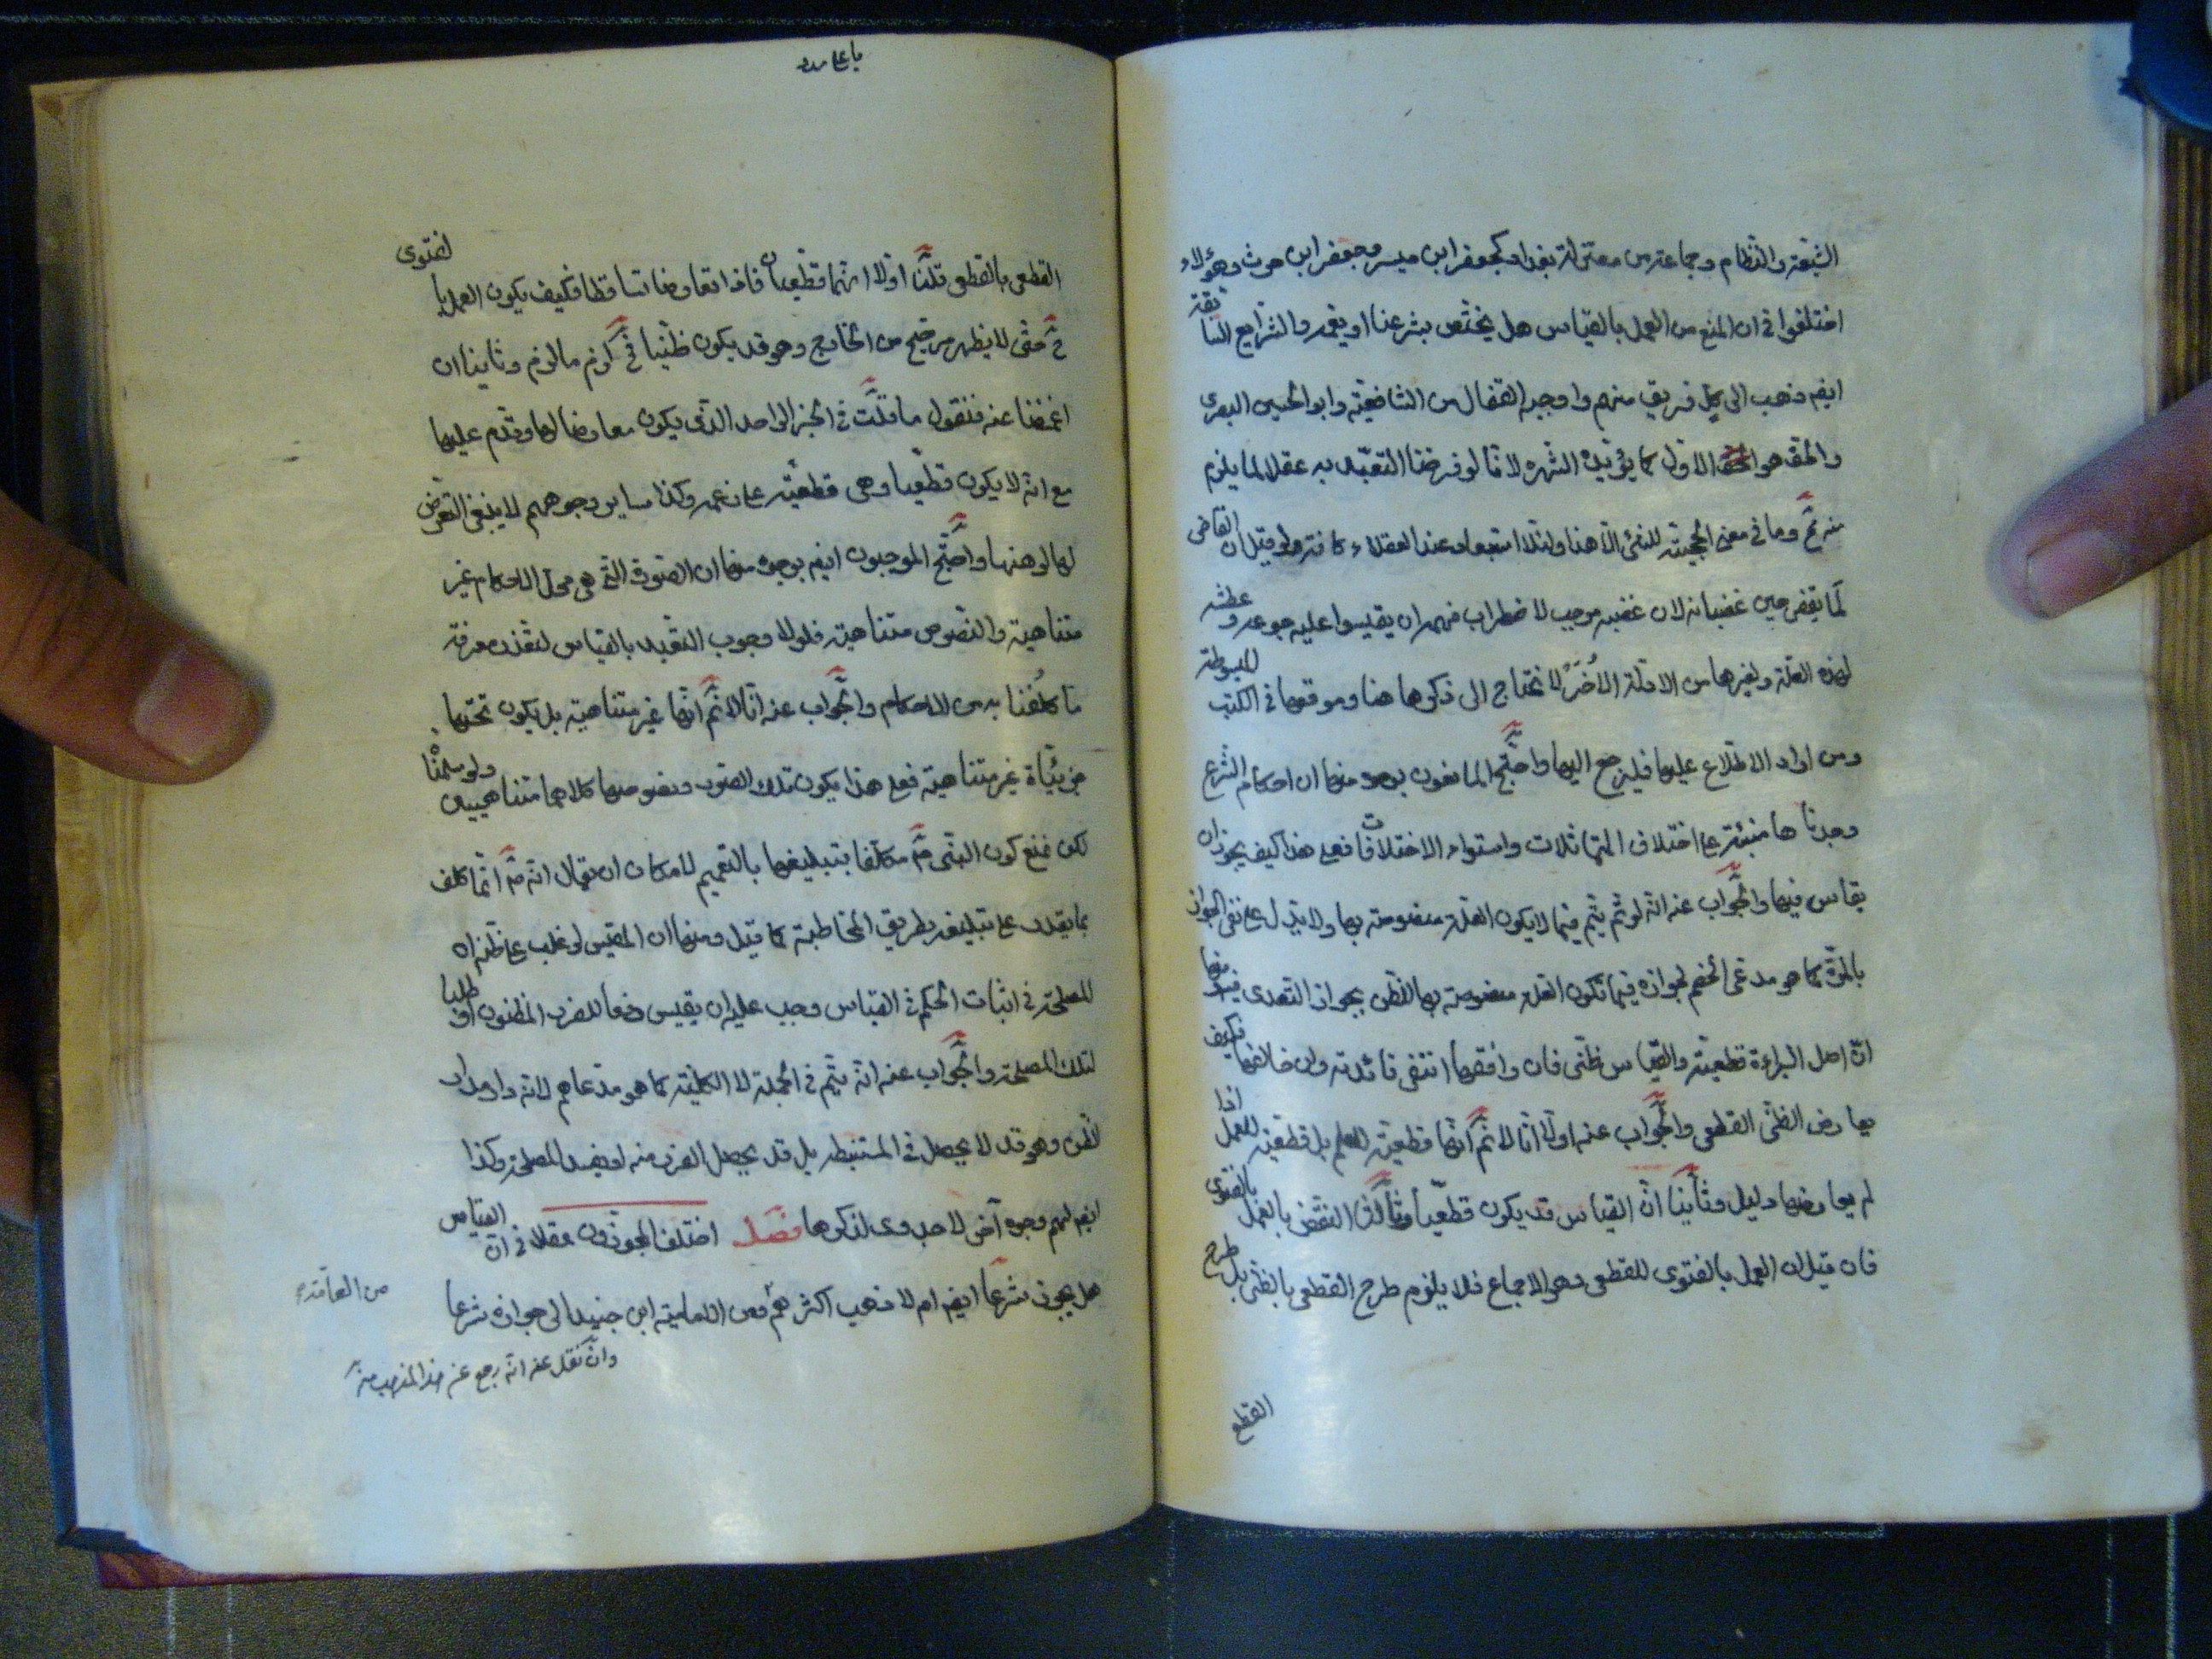 الشيعة والنظام وجماعة من معتزلة بغداد كجعفر ابن ميسر وجعفر ابن حرث وهؤلاء
اختلفوا في ان المنع من العمل بالقياس هل يختص بشرعنا او يعمه والشرايع السابقة
ايضم فذهب الى كل فريق منهم واوجبه القفال من الشافعية وابو الحسين البصرى
والحق هو الاول كما يؤيده الشهره لانا لو فرضنا التعبد به عقلا لما يلزم
منه مح وما في معنى الحجية للنفى الا هذا ولئلا استبعاد عند العقلاء كافة ولو قيل ان القاضى
لما يقض حين غضبانه لان غضبه موجب لاضطراب فهمه ان يقيسوا عليه جوعه وعطشه
لهذه العلة ولغيرها من الادلة الأُخَر لا نحتاج الى ذكرها هنا وموقعها في الكتب المبسوطة
ومن اراد الاطلاع عليها فليرجع اليها واحتج المانعون بوجوه منها ان احكام الشرع
وجدناها مبنية على اختلاف المتماثلات واستواء الاختلافات فعلى هذا كيف يجوز ان
يقاس فيها والجواب عنه انه لو تم يتم فيما لا يكون العلة منصوصة بها ولا يدل على نفى الجواز
بالمرة كما هو مدعى الخصم لجوازه فيما تكون العلة منصوصة بها للظن بجواز التعدى فيه منها
ان اصل البراءة قطعية والقياس ظنى فان وافقها انتفى فائدته وان خالفها فكيف
يعارض الظنى القطعى والجواب عنه اولا انا لا نم انها قطعية للعلم بل قطعية للعمل اذا
لم يعارضها دليل وثانيا ان القياس قد يكون قطعيا وثالثا النقض بالعمل بالفتوى
فان قيل ان العمل بالفتوى للقطعى وهو الاجماع فلا يلزم طرح القطعى بالظنى بل طرح
القطع
القطعى بالقطعى قلنا اولا انهما قطعيان فاذا تعارضا تساقطا فكيف يكون العمل بالفتوى
مح حتى لا يظهر مرجح من الخارج وهو قد يكون ظنيا فح لزم ما لزم وثانيا ان
اغمضنا عنه فنقول ما قلت في الخبر الواحد الذى يكون معارضا لها وقدم عليها
مع انه لا يكون قطعيا وهى قطعية على زعمه وكذا ساير وجوههم لا ينبغى التعرض
لها لوهنها واحتج الموجبون ايضم بوجوه منها ان الصور التى هى محل الاحكام غير
متناهية والنصوص متناهية فلولا وجوب التعبد بالقياس لتعذر معرفة
ما كلفنا به من الاحكام والجواب عنه انا لا نم انها غير متناهية بل يكون تحتها
جزئياة غير متناهية فعلى هذا يكون تلك الصور ونصوصها كلاهما متناهيين ولو سلمنا
لكن نمنع كون النبى ص مكلفا بتبليغها بالتعميم لامكان ان يقال انه ص انما كلف
بما يقدر على تبليغه بطريق المخاطبة كما قيل ومنها ان المقيس لو غلب على ظنه ان
المصلحة في اثبات الحكم في القياس وجب عليه ان يقيس دفعا للضرر المظنون او طلبا
لتلك المصلحة والجواب عنه انه يتم في الجملة لا الكلية كما هو مدعاهم لانه دار مدار
الظن وهو قد لا يحصل في المستنبطة بل قد يحصل الضرر منه او يفسد المصلحة وكذا
ايضم لهم وجوه آخر لا جدوى لذكرها فصل اختلف المجوزون عقلا في ان القياس
هل يجوز شرعا ايضم ام لا فذهب اكثرهم ومن الامامية ابن جنيد الى جوازه شرعا
من العامة
وان نقل عنه انه رجع عن هذا المذهب منه